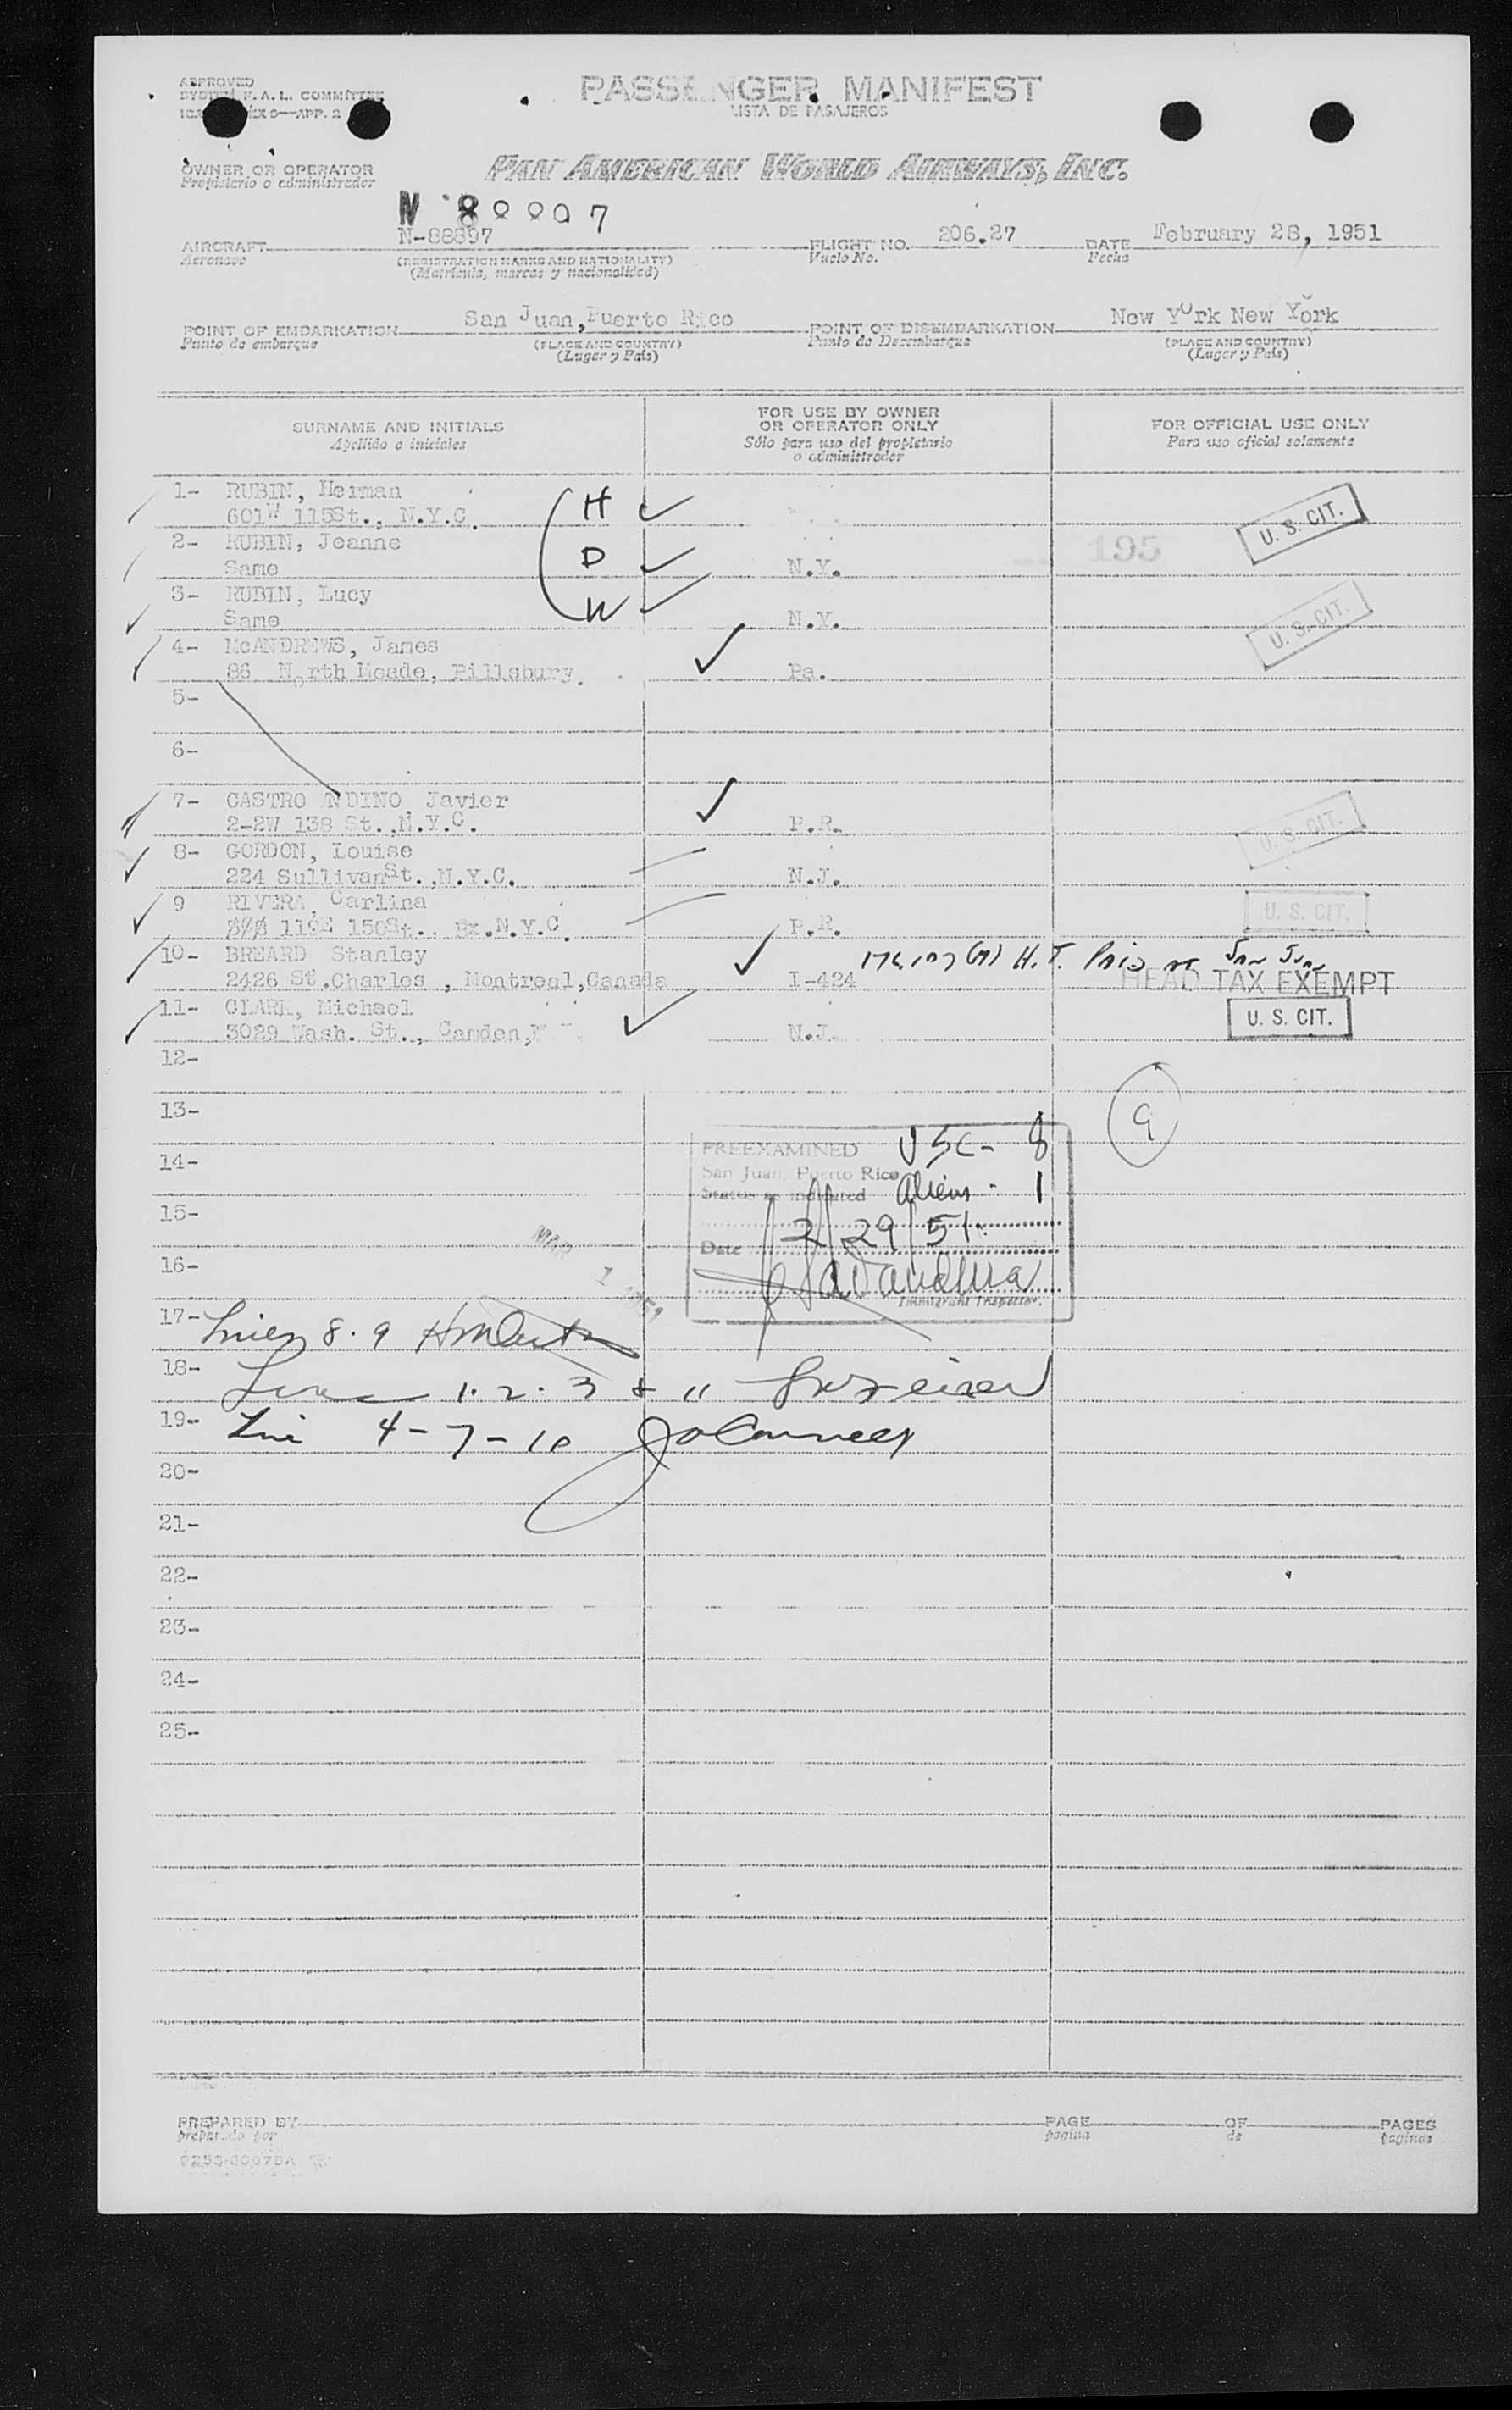 APPROVED
SYSTEM F.A.L. COMMITTEE
PASSENGER MANIFEST
LISTA DE PASAJEROS
OWNER OR OPERATOR
Propietario o administrador
PAN AMERICAN WORLD AIRWAYS, INC.
AIRCRAFT N-88897 FLIGHT NO. 206.27 DATE February 28, 1951
Aeronave (REGISTRATION MARKS AND NATIONALITY) Vuelo No. Fecha
(Matricula, marcas y nacionalidad)
POINT OF EMBARKATION San Juan, Puerto Rico POINT OF DISEMBARKATION New York New York
Punto de embarque (PLACE AND COUNTRY) Punto de Desembarque (PLACE AND COUNTRY)
(Lugar y Pais) (Lugar y Pais)
SURNAME AND INITIALS FOR USE BY OWNER OR OPERATOR ONLY FOR OFFICIAL USE ONLY
Apellido e iniciales Sólo para uso del propietario o administrador Para uso oficial solamente
1- RUBIN, Herman H
601W 115St., N.Y.C. U. S. CIT.
2- RUBIN, Joanne D 195
Same N.Y.
3- RUBIN, Lucy W
Same N.Y. U. S. CIT.
4- McANDREWS, James
86 North Meade, Pillsbury. Pa.
5-
6-
7- CASTRO ANDINO, Javier
2-2W 138 St.,N.Y.C. P.R. U. S. CIT.
8- GORDON, Louise
224 SullivanSt.,N.Y.C. N.J.
9 RIVERA, Carlina U. S. CIT.
116E 150St., Bx.N.Y.C. P.R.
10- BREARD Stanley H.T. Paid
2426 St.Charles , Montreal,Canada I-424 HEAD TAX EXEMPT
11- CLARK, Michael U. S. CIT.
3029 Wash. St., Camden, N.J.
12-
13- 9
PREEXAMINED USC- 8
14- San Juan, Puerto Rico
Status as indicated Aliens - 1
15- 2/29/51
Date
MAR 1
16-
Immigrant Inspector.
17- Lines 8.9
18- Lines 1.2.3 &
19- Line 4-7-10
20-
21-
22-
23-
24-
25-
PREPARED BY PAGE OF PAGES
preparado por pagina de paginas